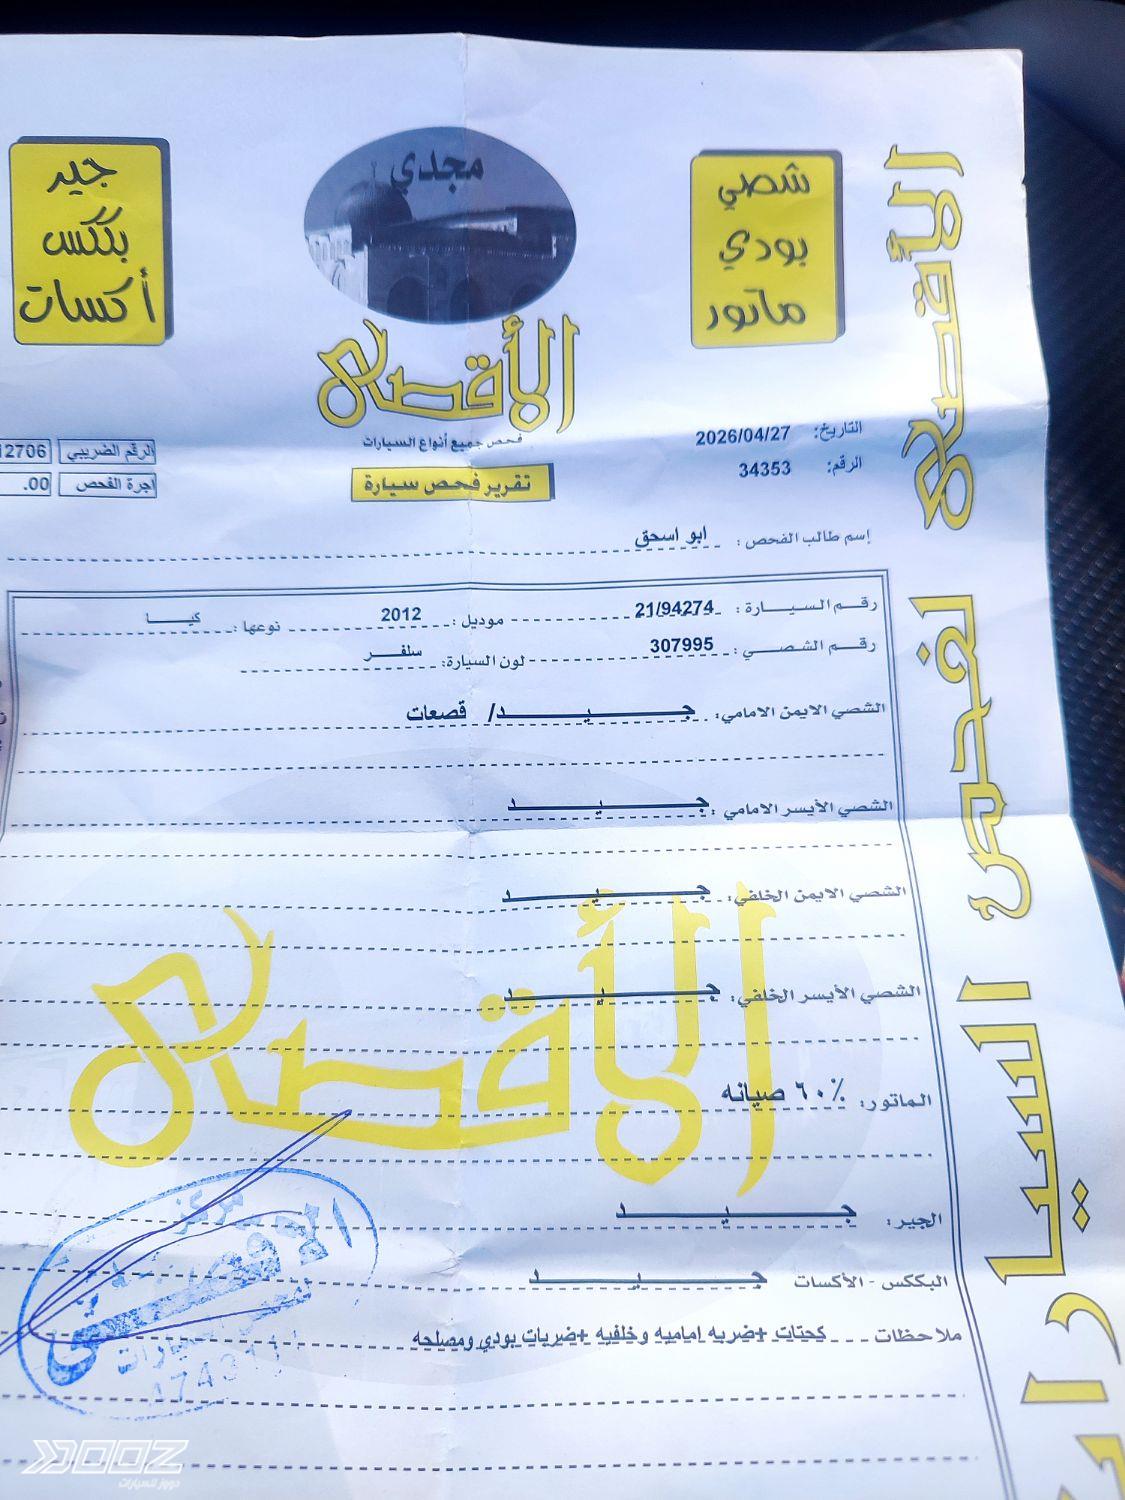 جير
بككس
أكسات
مجدي
شصي
بودي
ماتور
الأقصى
فحص جميع أنواع السيارات
تقرير فحص سيارة
التاريخ: 2026/04/27
الرقم: 34353
الرقم الضريبي 12706
اجرة الفحص .00
إسم طالب الفحص: ابو اسحق
رقم السيارة: 21/94274 موديل: 2012 نوعها: كيا
رقم الشصي: 307995 لون السيارة: سلفر
الشصي الايمن الامامي: جيد/ قصعات
الشصي الأيسر الامامي: جيد
الشصي الايمن الخلفي: جيد
الشصي الأيسر الخلفي: جيد
الماتور: ٦٠٪ صيانه
الجير: جيد
البككس - الأكسات جيد
ملاحظات كحتات +ضربه اماميه وخلفيه +ضربات بودي ومصلحه
الأقصى
الأقصى لفحص السيارات
مركز
الأقصى
لفحص السيارات
DOOZ
دووز للسيارات